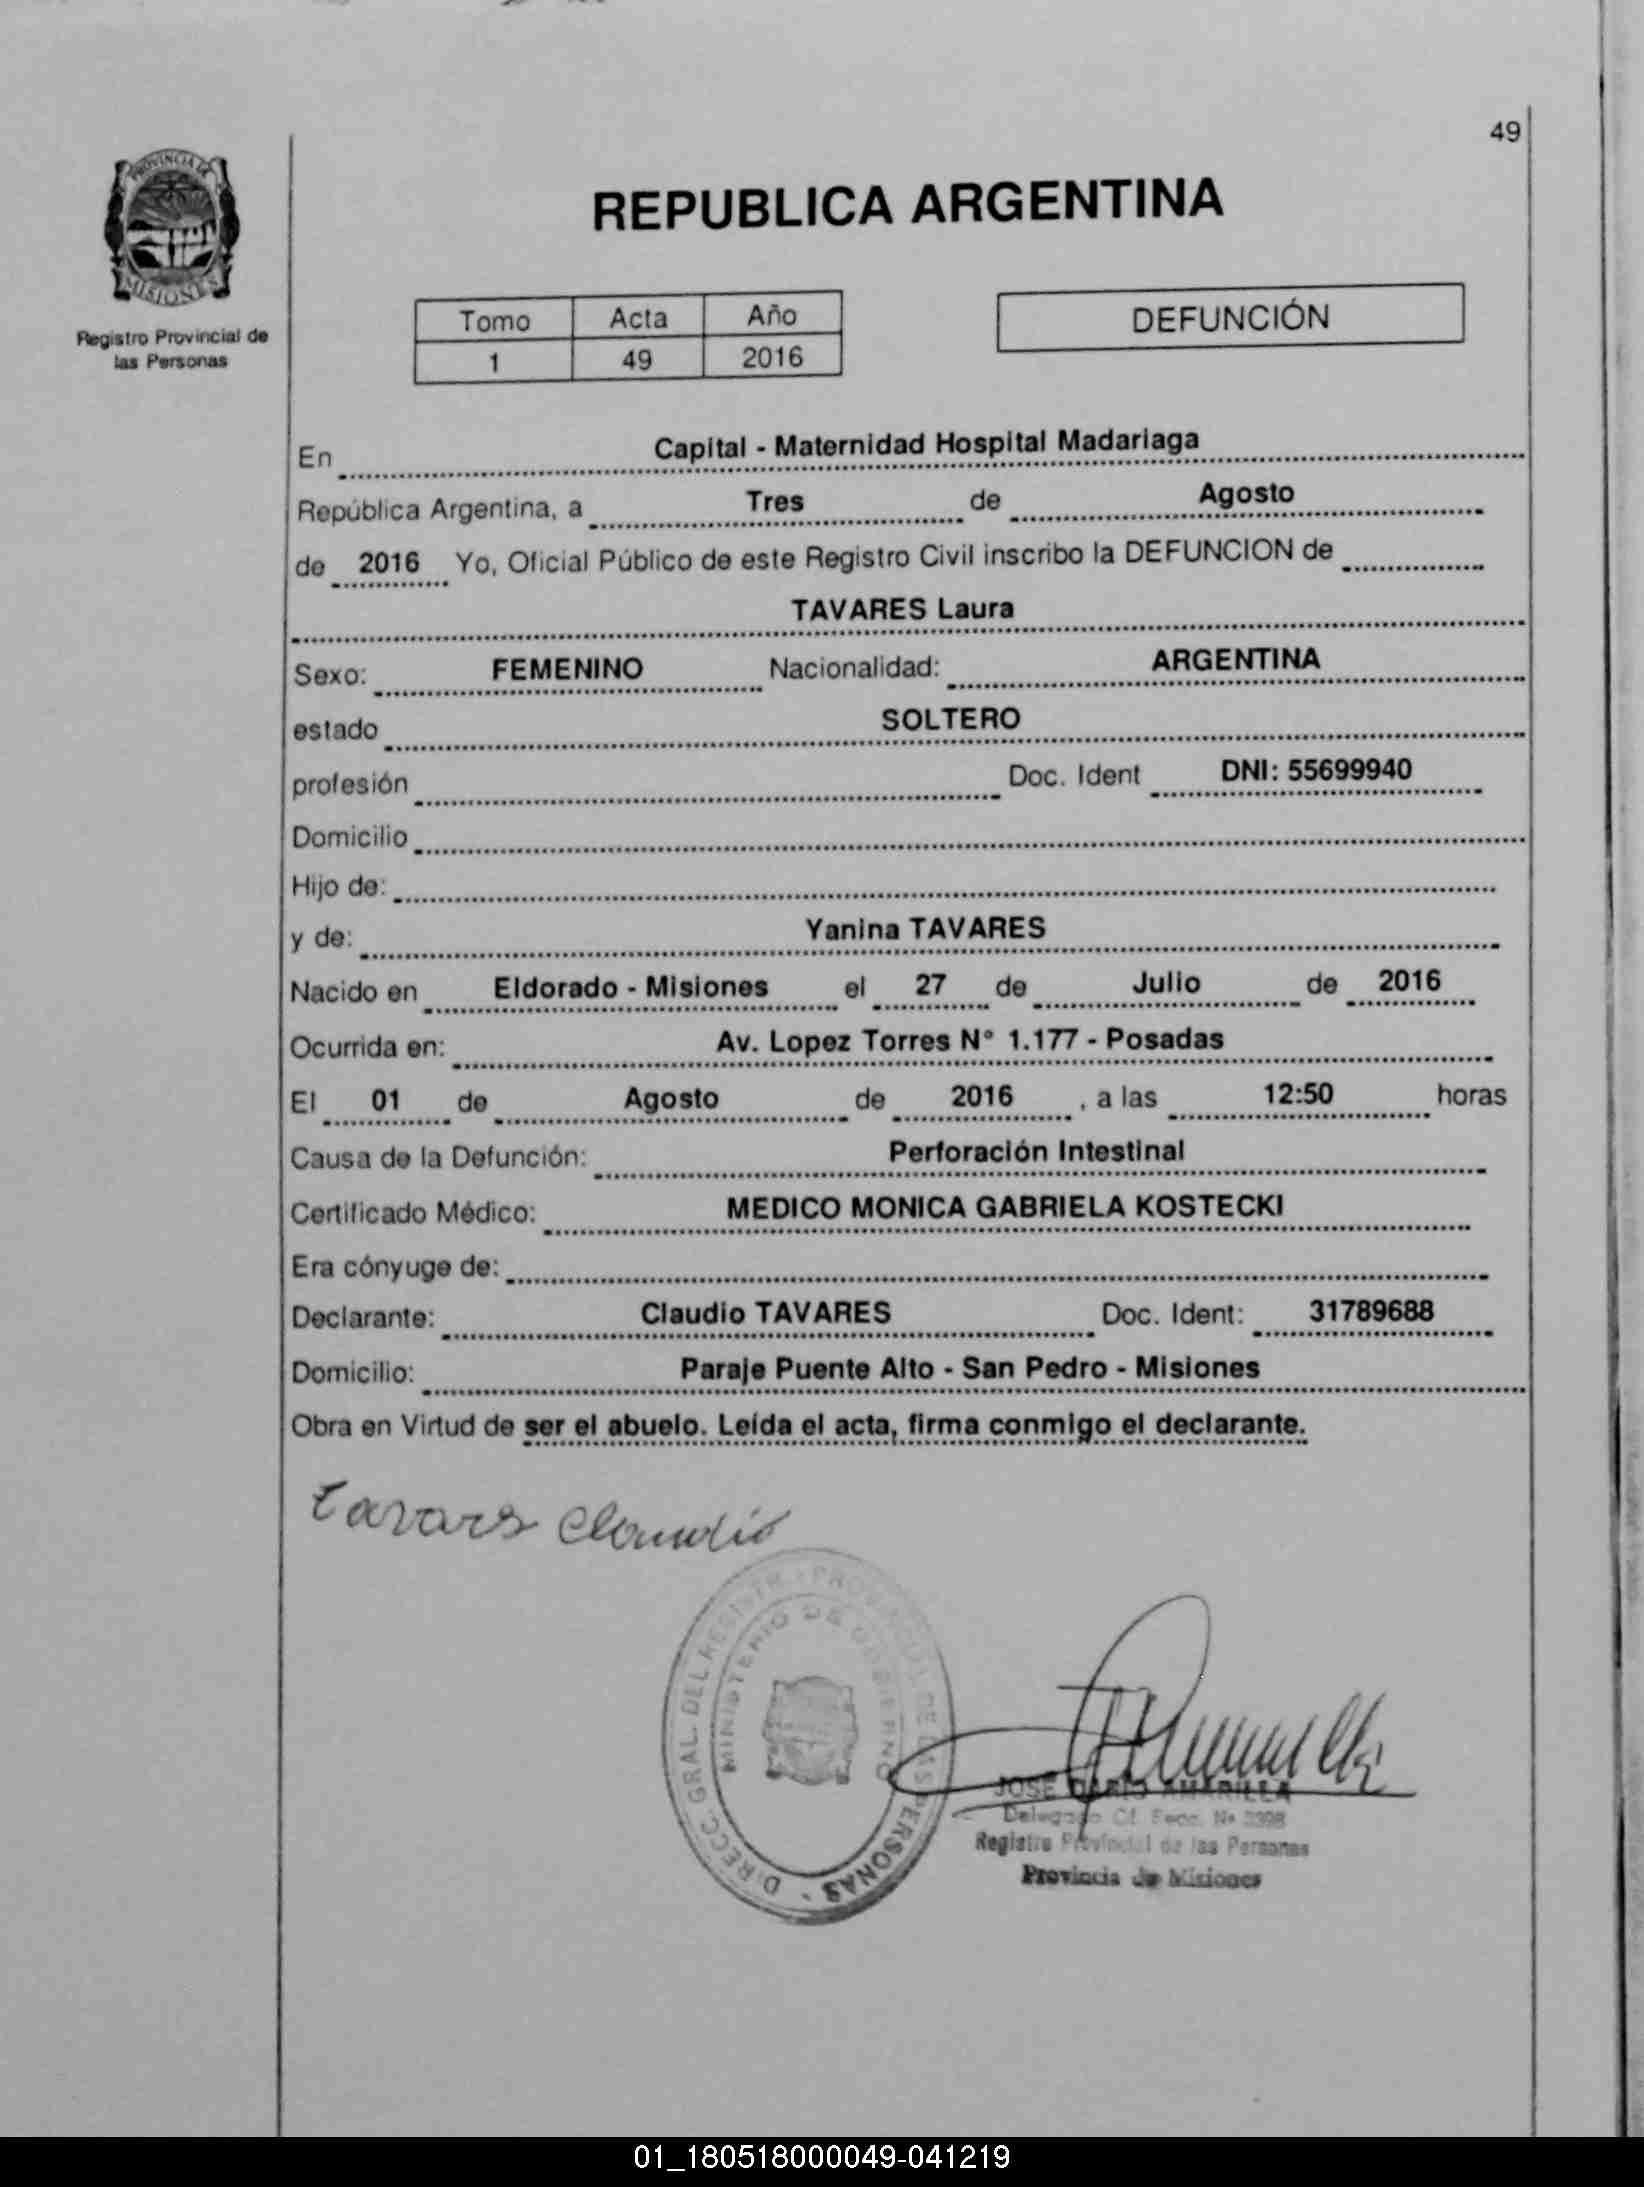 49
PROVINCIA DE
MISIONES
Registro Provincial de
las Personas
REPUBLICA ARGENTINA
Tomo Acta Año
1 49 2016
DEFUNCIÓN
En Capital - Maternidad Hospital Madariaga
República Argentina, a Tres de Agosto
de 2016 Yo, Oficial Público de este Registro Civil inscribo la DEFUNCION de
TAVARES Laura
Sexo: FEMENINO Nacionalidad: ARGENTINA
estado SOLTERO
profesión Doc. Ident DNI: 55699940
Domicilio
Hijo de:
y de: Yanina TAVARES
Nacido en Eldorado - Misiones el 27 de Julio de 2016
Ocurrida en: Av. Lopez Torres N° 1.177 - Posadas
El 01 de Agosto de 2016 , a las 12:50 horas
Causa de la Defunción: Perforación Intestinal
Certificado Médico: MEDICO MONICA GABRIELA KOSTECKI
Era cónyuge de:
Declarante: Claudio TAVARES Doc. Ident: 31789688
Domicilio: Paraje Puente Alto - San Pedro - Misiones
Obra en Virtud de ser el abuelo. Leída el acta, firma conmigo el declarante.
Tavares Claudio
DIRECC. GRAL. DEL REGISTR. PROVINCIAL DE LAS PERSONAS
MINISTERIO DE GOBIERNO
JOSE DARIO AMARILLA
Registro Provincial de las Personas
Provincia de Misiones
01_180518000049-041219